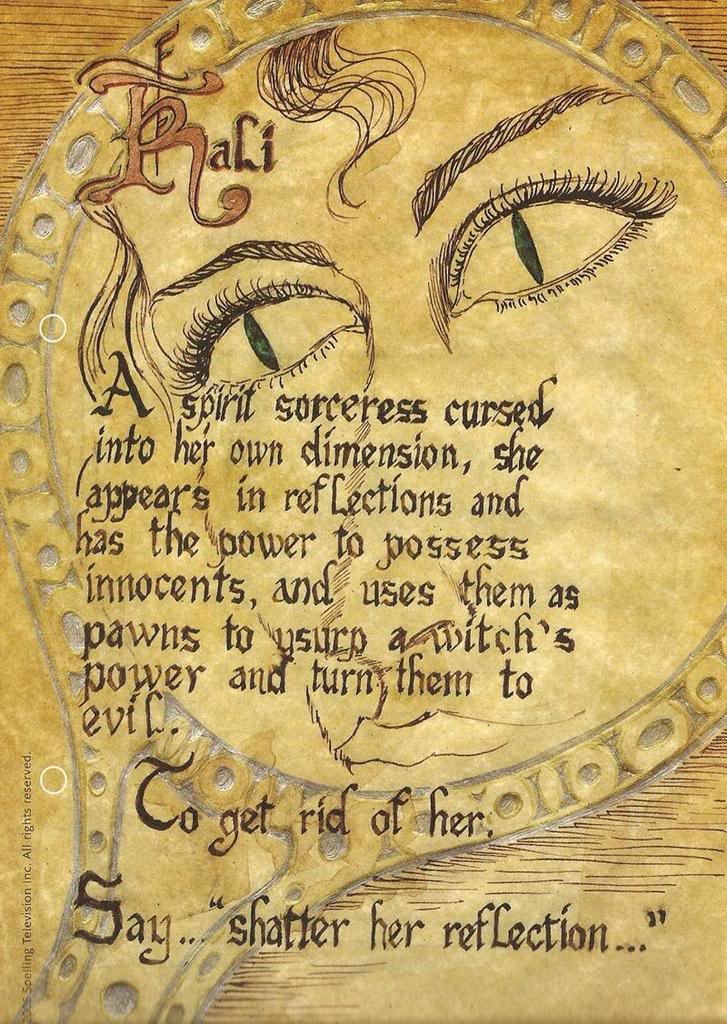 Kali
A spirit sorceress cursed
into her own dimension, she
appears in reflections and
has the power to possess
innocents, and uses them as
pawns to usurp a witch's
power and turn them to
evil.
To get rid of her:
Say... "shatter her reflection..."
Spelling Television Inc. All rights reserved.